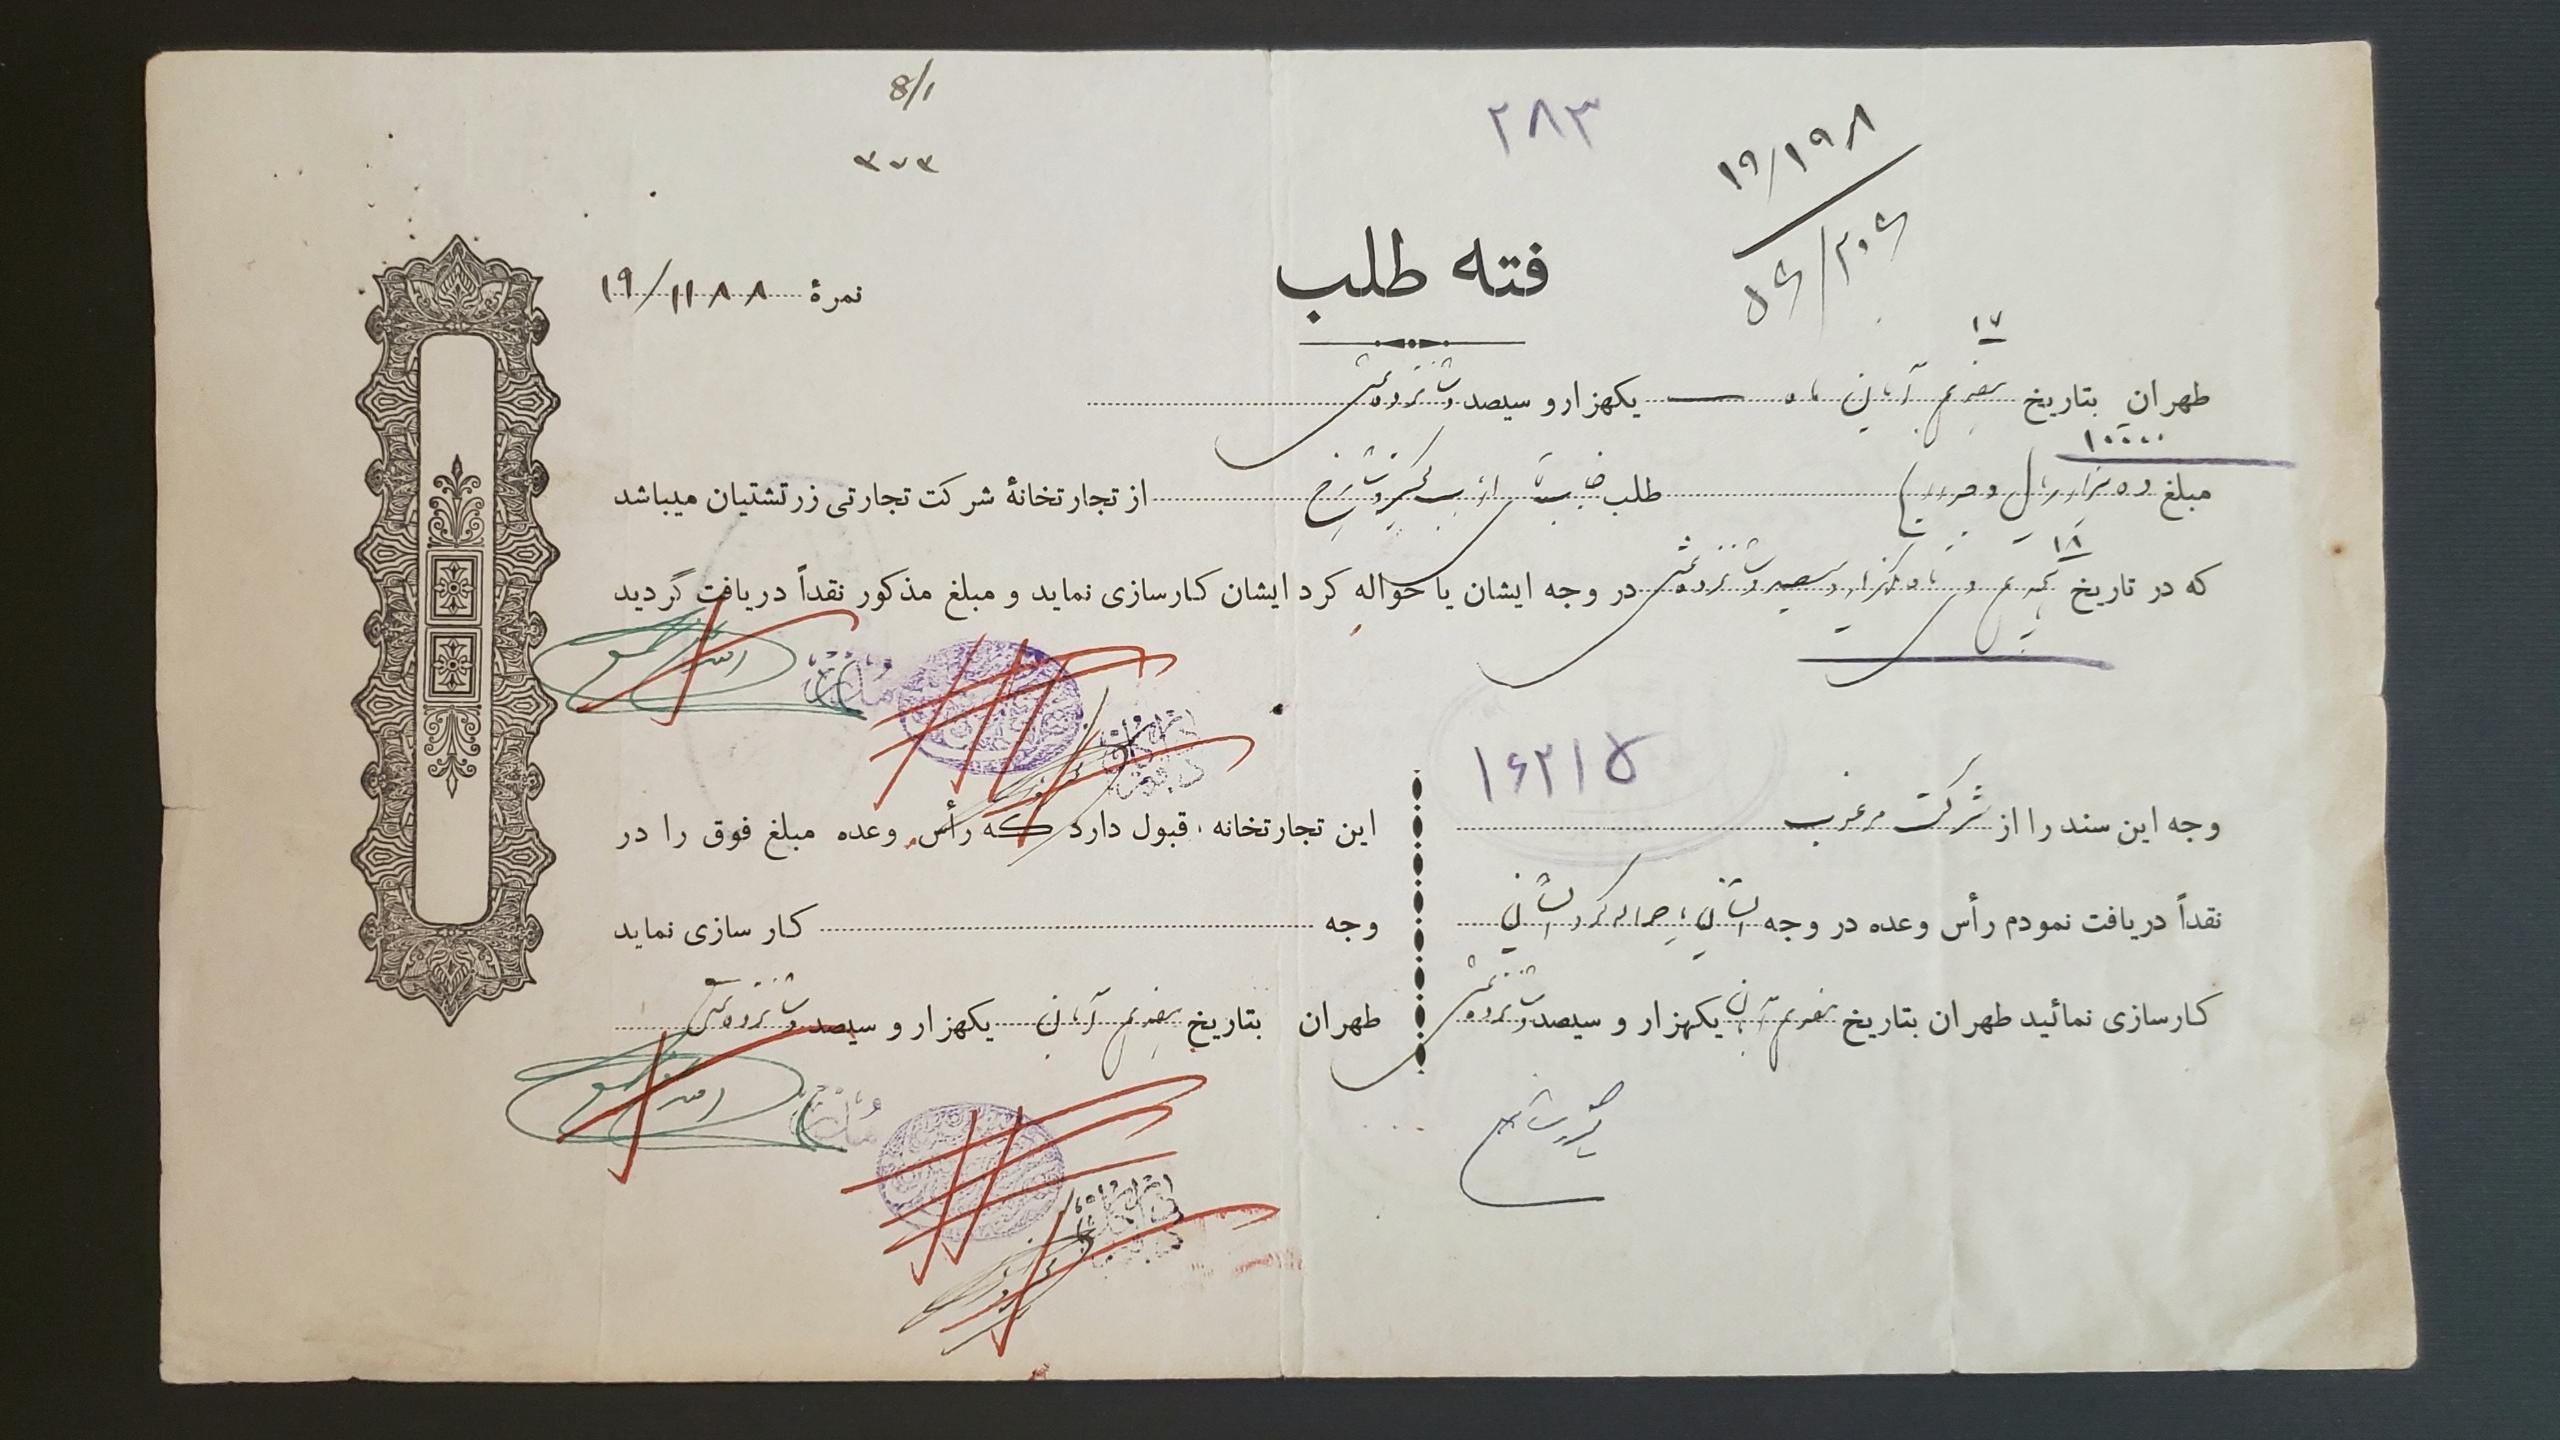 8/۱
۳۷۳
۲۸۳
۱۹/۱۹۸
۵۶/۲۰۶
فته طلب
نمرهٔ ۱۹/۱۱۸۸
۱۷
طهران بتاریخ هفدهم آبان ماه یکهزار و سیصد و شانزده شمسی
۱۰۰۰۰
مبلغ ده هزار ریال طلب ارباب کیخسرو شاهرخ از تجارتخانهٔ شرکت تجارتی زرتشتیان میباشد
۱۸
که در تاریخ هیجدهم ماه یکهزار و سیصد و شانزده شمسی در وجه ایشان یا حواله کرد ایشان کارسازی نماید و مبلغ مذکور نقداً دریافت گردید
۱۶۲۱۵
وجه این سند را از شرکت مرغوب
نقداً دریافت نمودم رأس وعده در وجه ایشان یا حواله کرد ایشان
کارسازی نمائید طهران بتاریخ هفدهم آبان یکهزار و سیصد و شانزده
این تجارتخانه قبول دارد که رأس وعده مبلغ فوق را در
وجه کار سازی نماید
طهران بتاریخ هفدهم آبان یکهزار و سیصد و شانزده شمسی